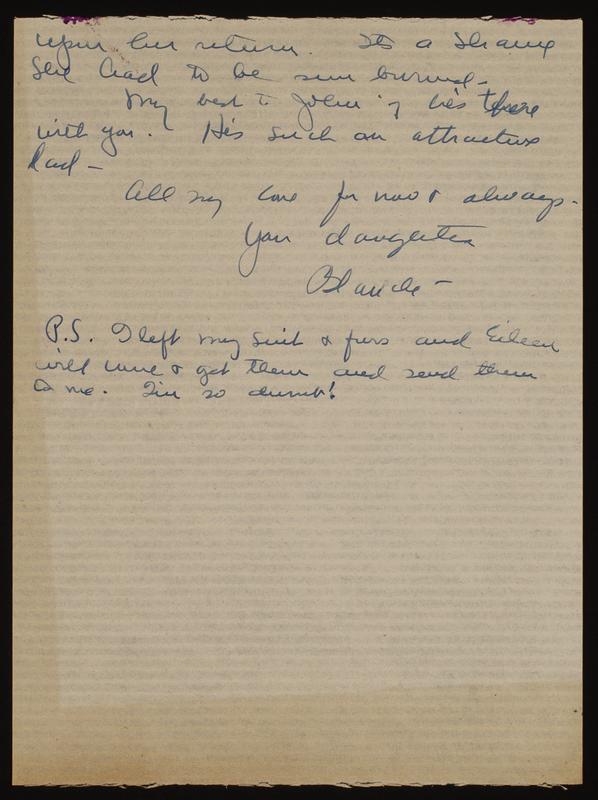 upon her return. Its a shame
she had to be sun burned -
My best to John if he's there
with you. He's such an attractive
lad -
All my love for now & always.
Your daughter
Blanche -
P.S. I left my suit & furs and Eileen
will come & get them and send them
to me. I'm so dumb!